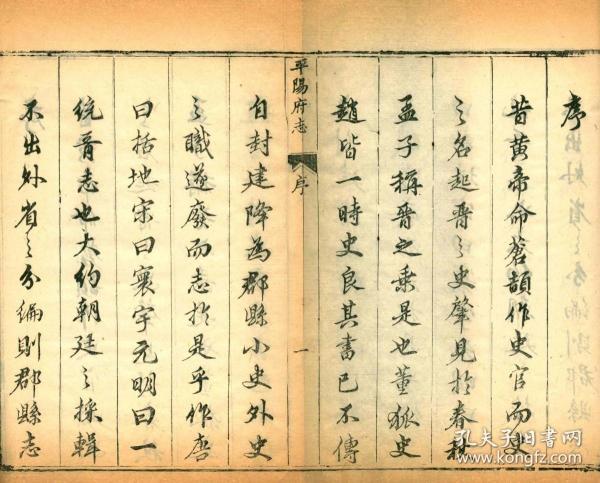 序
昔黃帝命蒼頡作史官而史
之名起晉之史肇見於春秋
孟子稱晉之乗是也董狐史
趙皆一時史良其書已不傳
平陽府志
序
一
自封建降為郡縣小史外史
之職遂廢而志於是乎作唐
曰括地宋曰寰宇元明曰一
統晋志也大約朝廷之採輯
不出外省之分編則郡縣志
孔夫子旧书网
www.kongfz.com